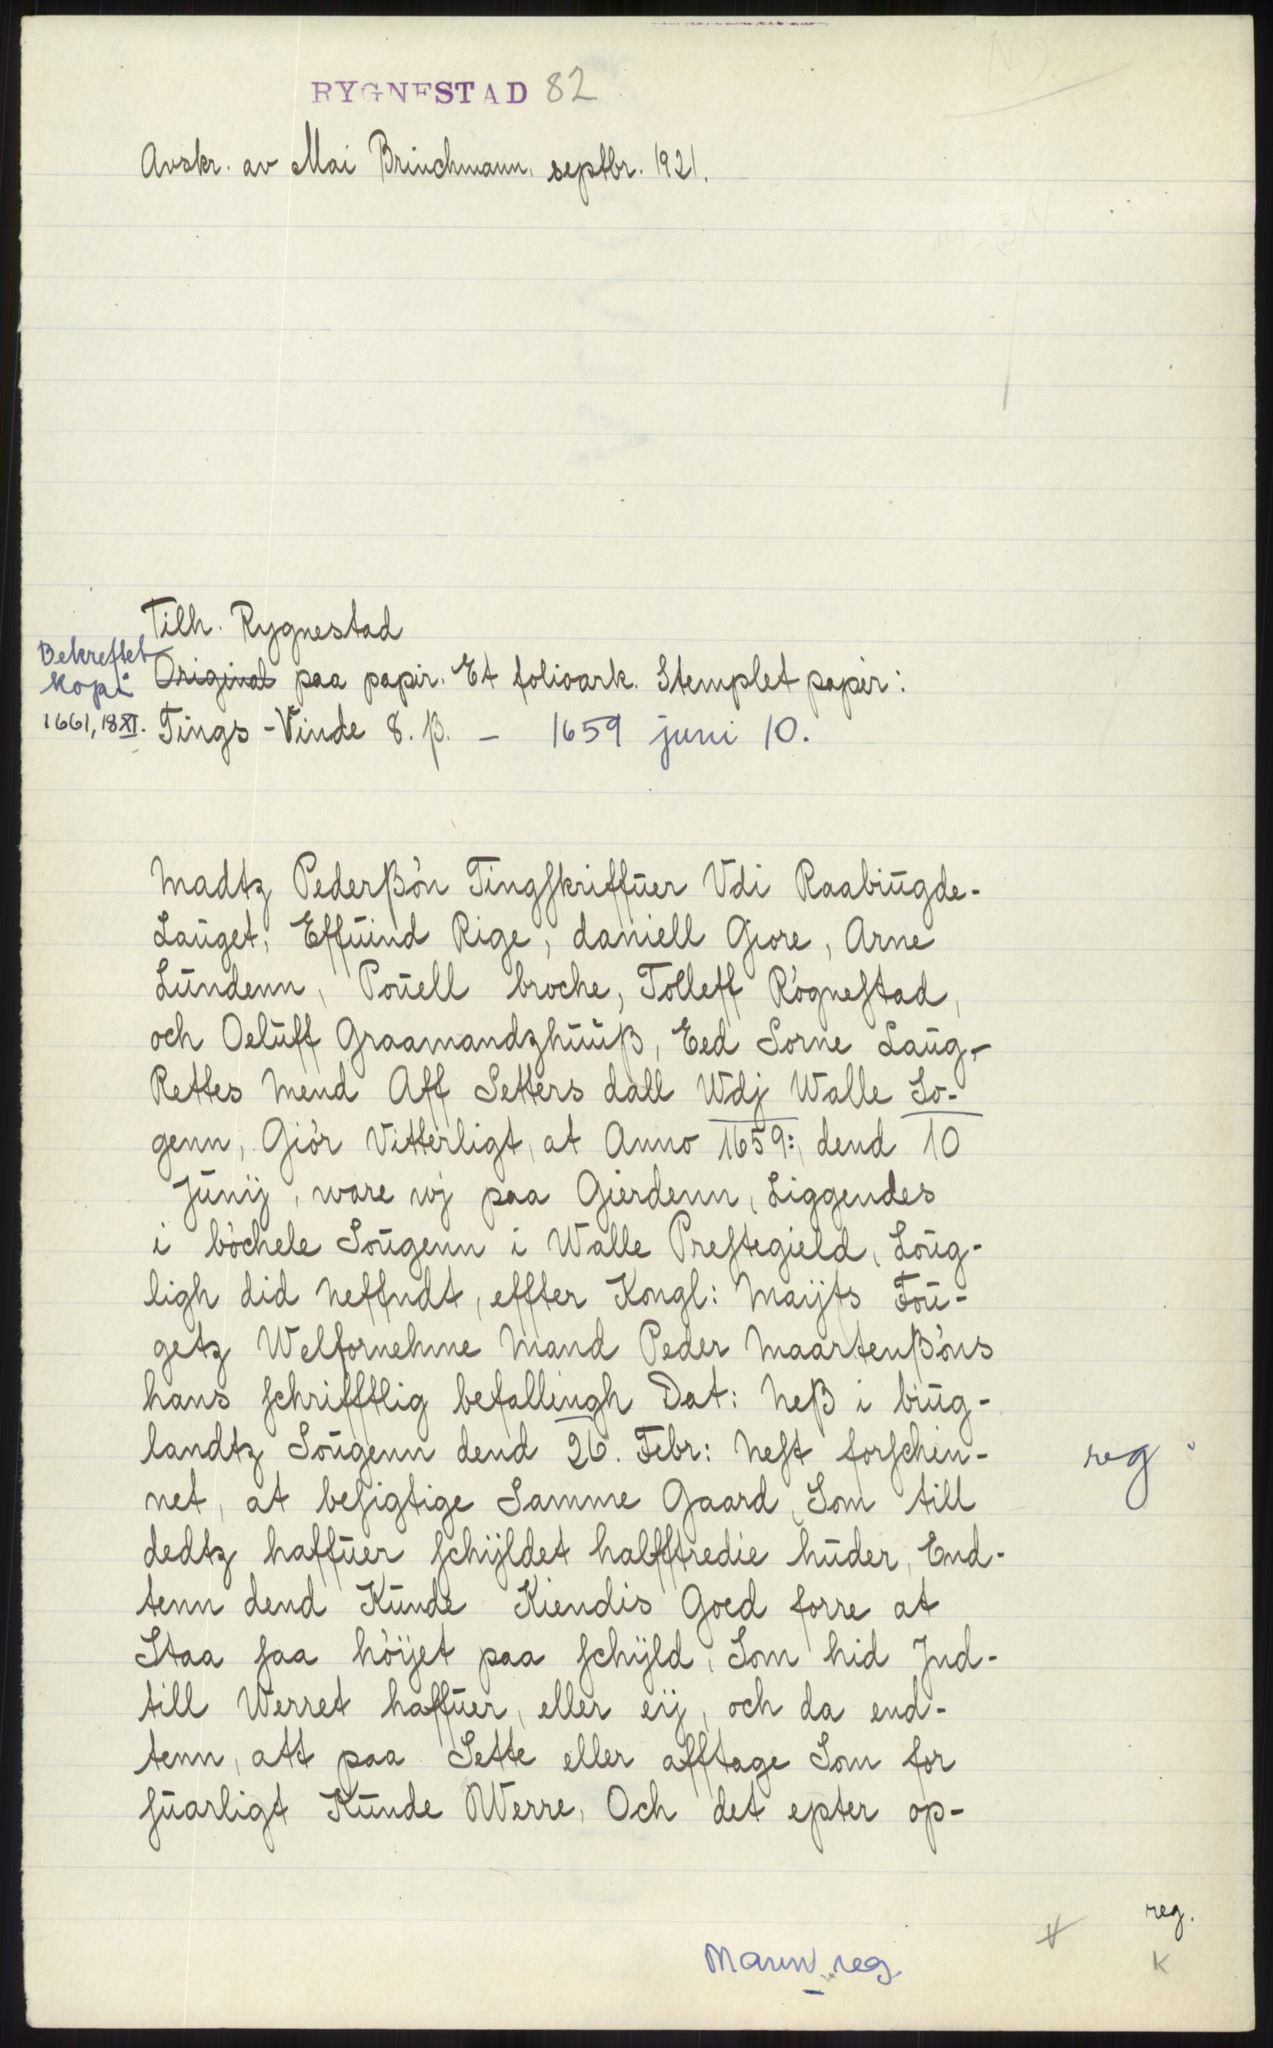 RYGNESTAD 82
Avskr. av Mai Brinchmann, septbr. 1921.
Tilh. Rygnestad
Bekreftet
kopi
Original paa papir. Et folioark. Stemplet papir:
1661, 18 XI.
Tings-Vinde 8. β. – 1659 juni 10.
Madtz Pederßøn Tingskriffuer Vdi Raabiugde-
Lauget, Effuind Rige, daniell Giore, Arne
Lundenn, Pouell broche, Tolleff Røgnestad,
och Oeluff Graamandzhuuß, Eed Sorne Laug-
Rettes Mend Aff Setters dall Wdj Walle So-
genn, Giør Vitterligt, at Anno 1659: dend 10
Junij, ware wj paa Gierdenn, Liggendes
i bøchele Sougenn i Walle Prestegield, Loug-
ligh did Neffndt, effter Kongl: Maijts Fou-
getz Welfornehme Mand Peder Maartenßøns
hans schrifftlig befallingh Dat: Neß i biug-
landtz Sougenn dend 26. Febr: Nest forschin-
reg
net, at besigtige Samme Gaard, Som till
dedtz haffuer schijldet halfftredie huder, End-
tenn dend Kunde Kiendis Goed forre at
Staa saa høijet paa schijld, Som hid Jnd-
till Werret haffuer, eller eij, och da end-
tenn, att paa Sette eller afftage Som for
suarligt Kunde Werre, Och det epter op-
reg.
K
reg